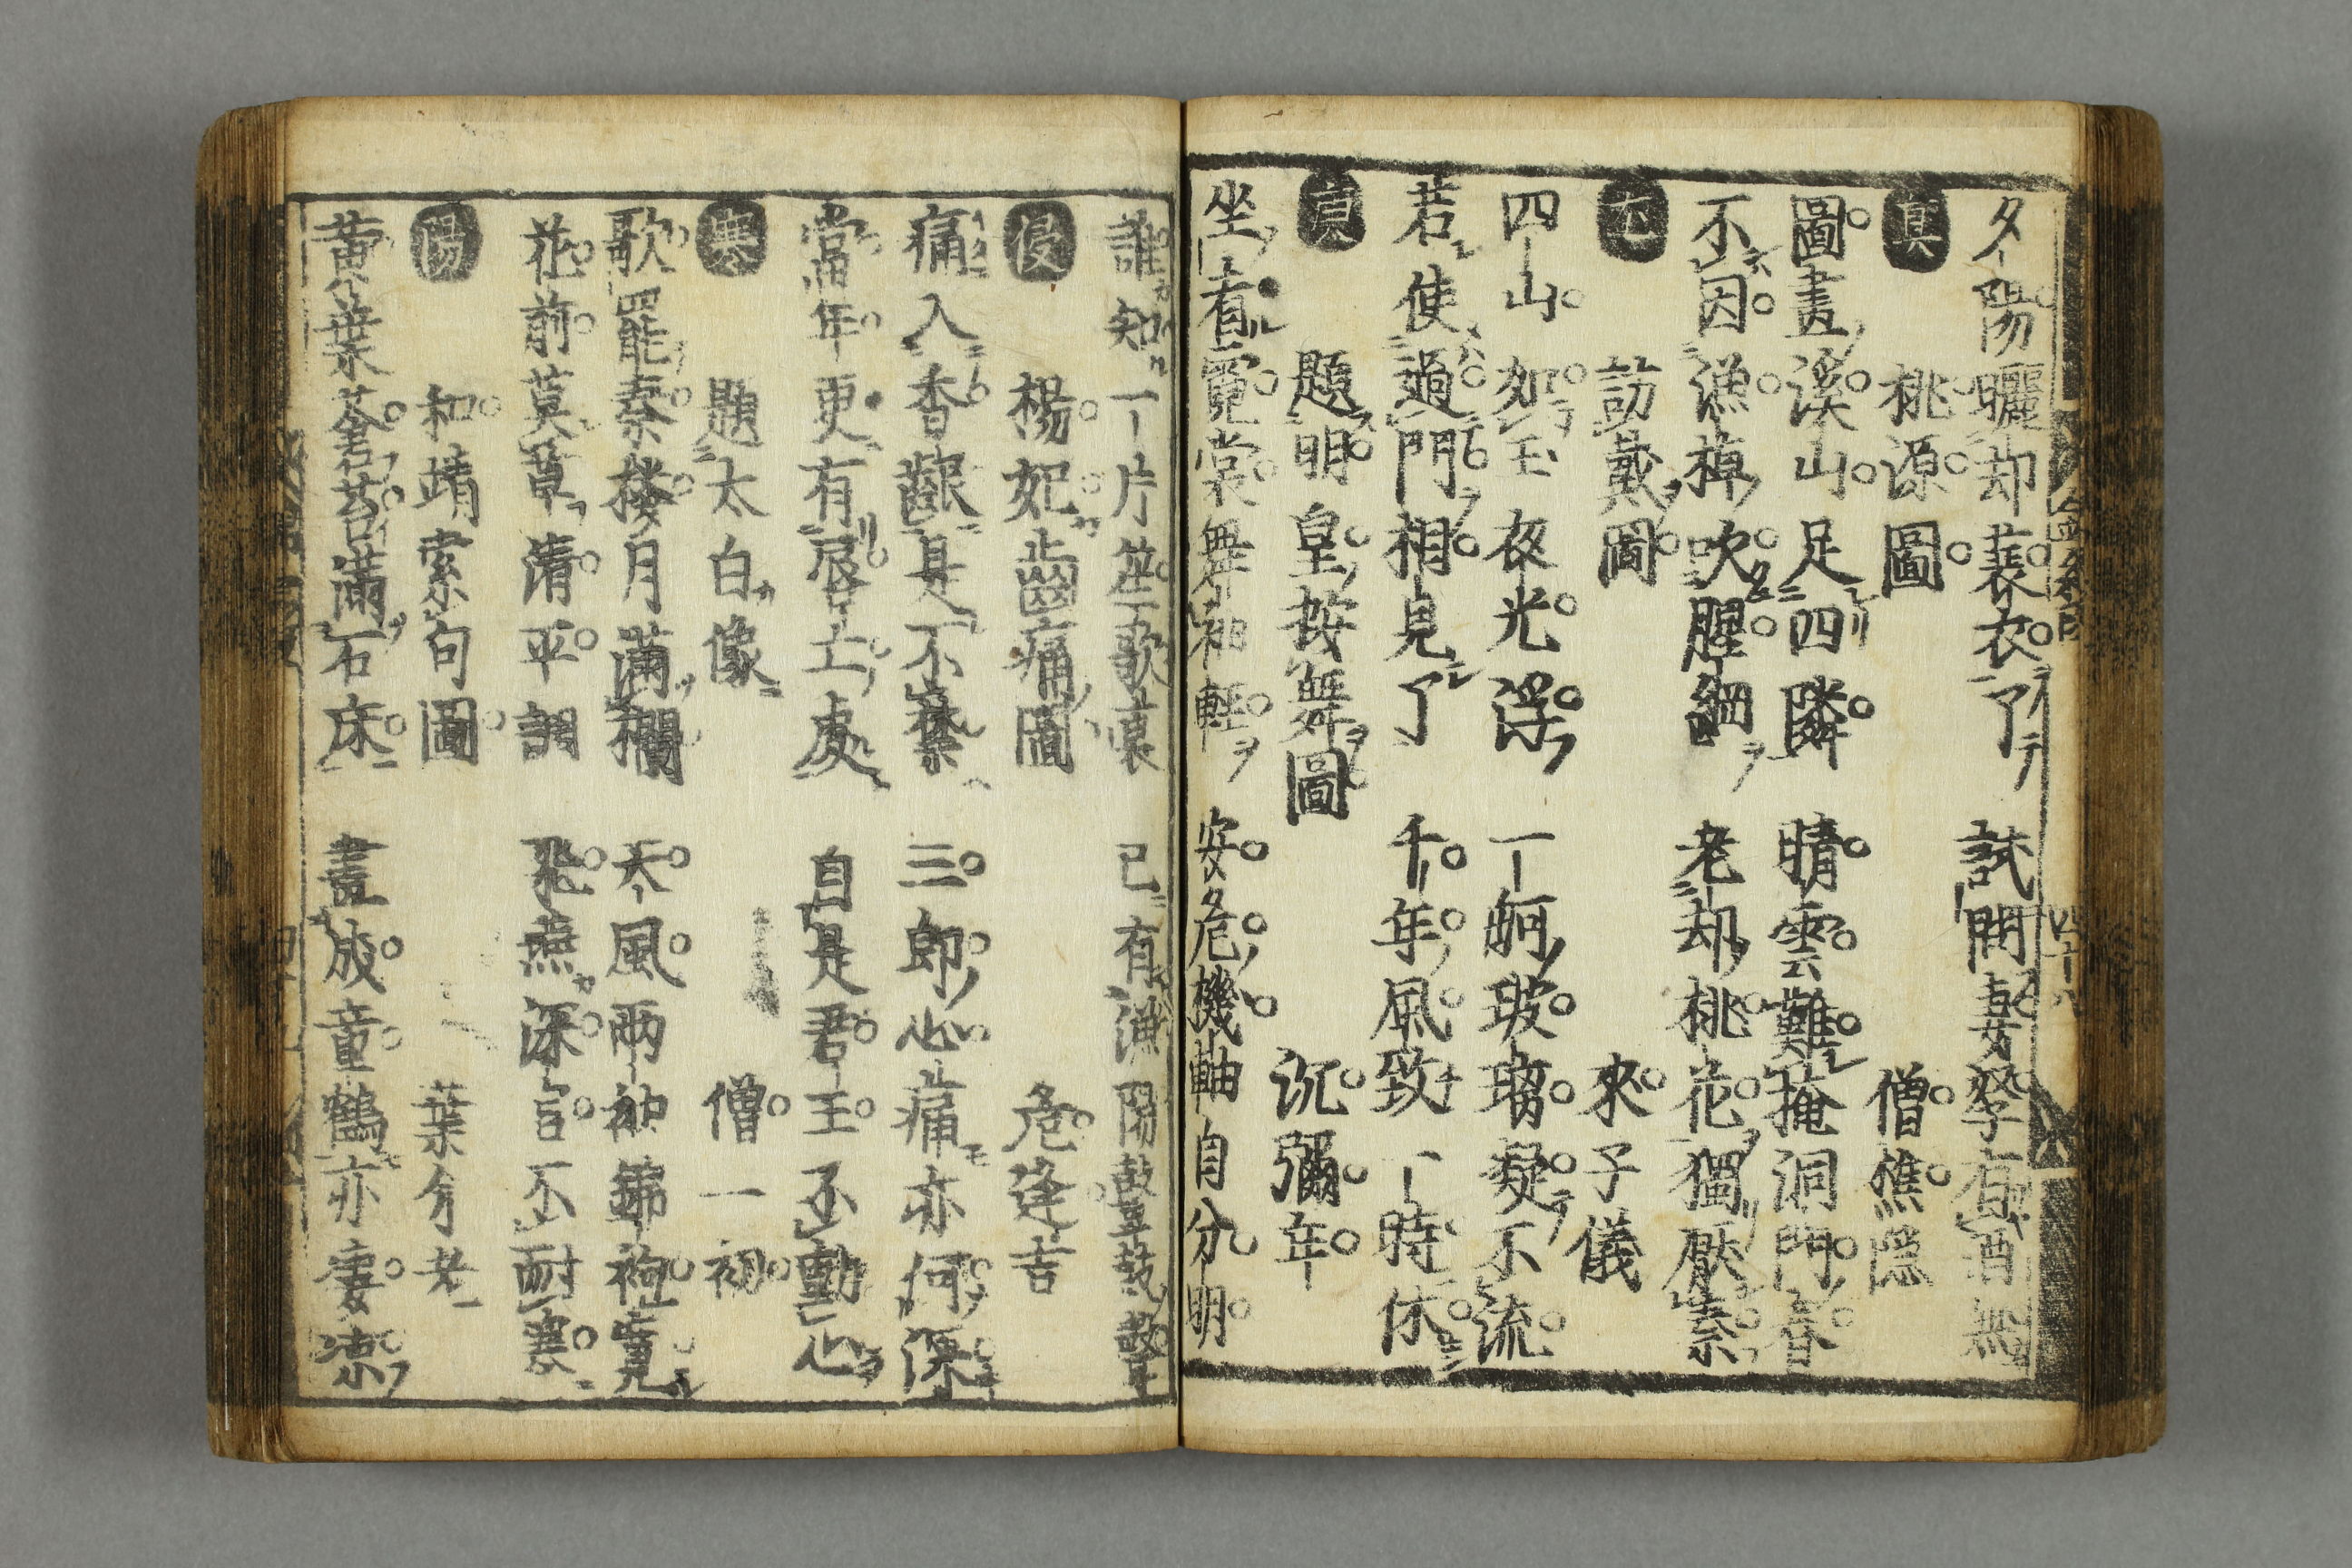 夕陽曬却蓑衣了 試問妻孥有酒無
眞 桃源圖 僧樵隱
圖畫溪山足四隣 晴雲難掩洞門春
不因漁棹吹腥網 老却桃花獨厭秦
尤 訪戴圖 來子儀
四山如玉夜光浮 一舸玻瓈凝不流
若使過門相見了 千年風致一時休
題明皇按舞圖 沉彌年
坐看霓裳舞袖輕 安危機軸自分明
誰知一片笙歌裏 已有漁陽鼙鼓聲
侵 楊妃齒痛圖 危逢吉
痛入香齦是不禁 三郎心痛亦何深
當年更有唇亡處 自是君王不動心
寒 題太白像 僧一初
歌罷秦樓月滿欄 天風兩袖錦袍寛
花前莫草清平調 飛燕深言不耐寒
陽 和靖索句圖 葉兮老
黃葉蒼苔滿石床 畫成童鶴亦凄凉